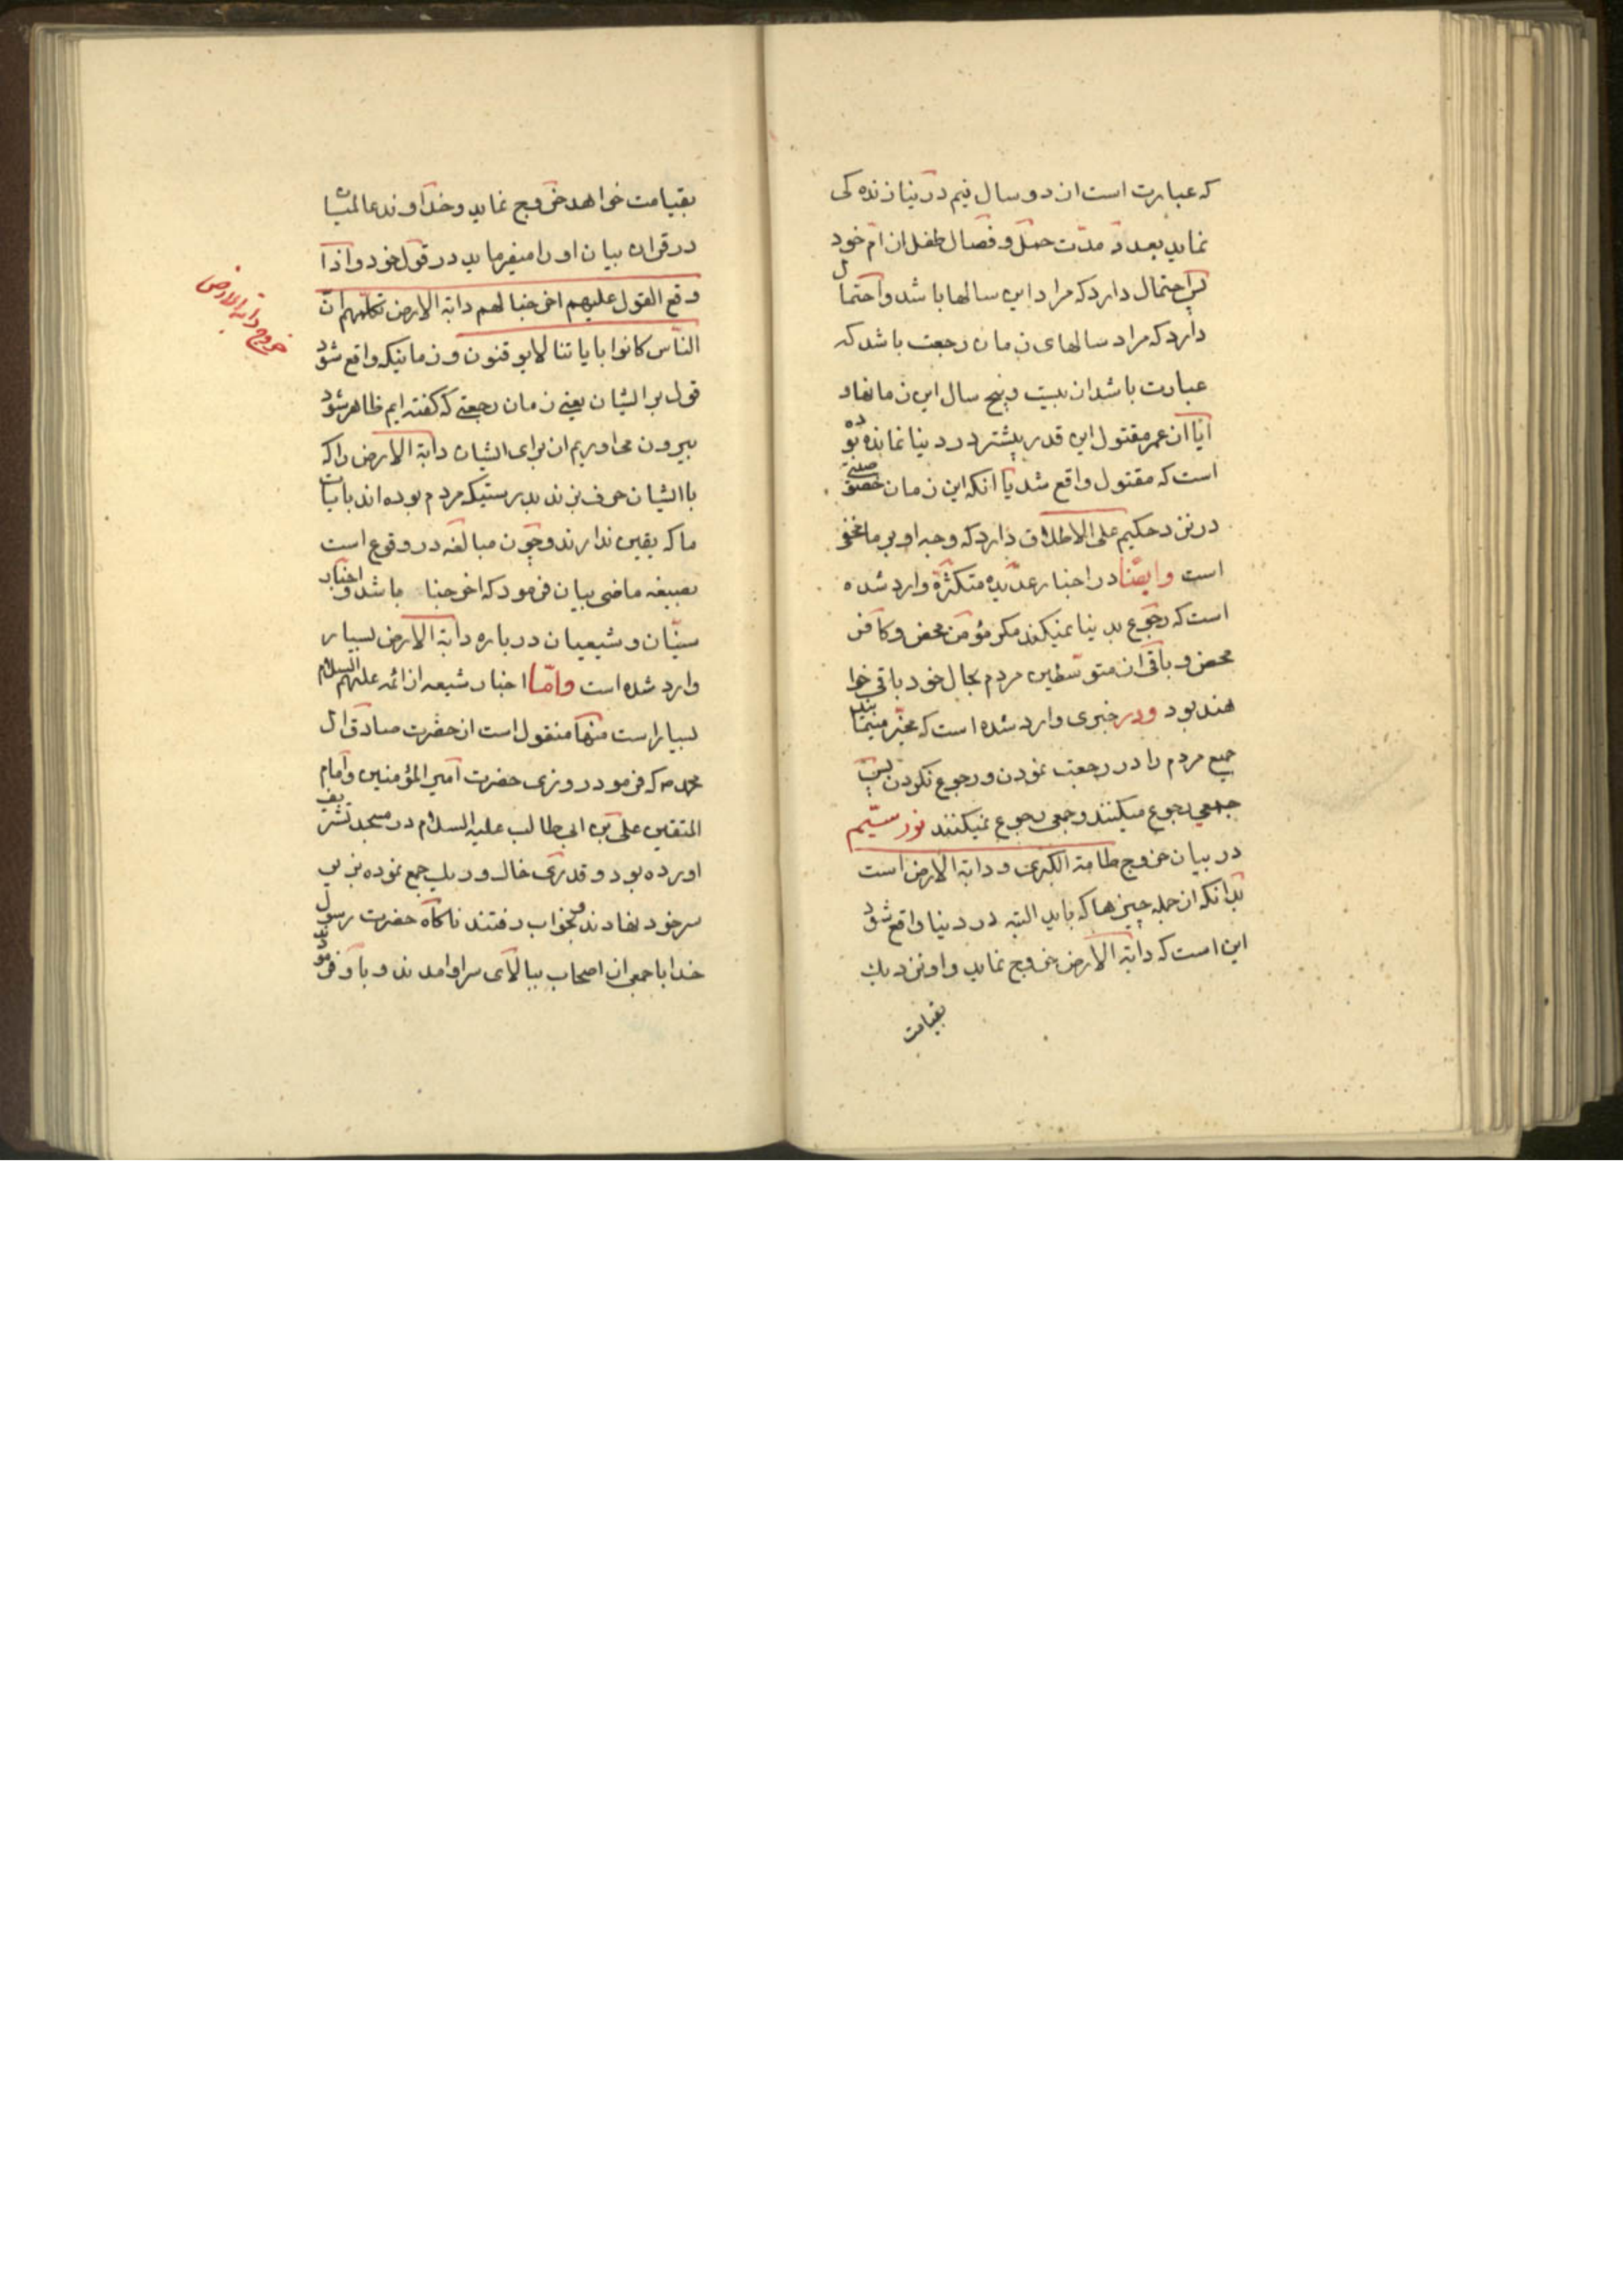 که عبارت است از دو سال نیم در دنیا زنده کی
نماید بعدد مدّت حمل و فصال طفل از امّ خود
پس احتمال دارد که مراد این سالها باشد و احتمال
دارد که مراد سالهای زمان رجعت باشد که
عبارت باشد از بیست و پنج سال این زمانها و
ایا ان عمر مقتول این قدر بیشتر در دنیا نمانده بوده
است که مقتول واقع شد یا انکه این زمان
در نزد حکیم علی الاطلاق دارد که وجه او بر ما مخفی
است وایضًا در اخبار عدیده متکثّره وارد شده
است که رجوع بدنیا نمیکند مکر مؤمن محض و کافر
محض و باقی از متوسّطین مردم بحال خود باقی خوا
هند بود ودر خبری وارد شده است که مخیّر مینمایند
جمیع مردم را در رجعت نمودن و رجوع نکردن پس
جمعی رجوع میکنند و جمعی رجوع نمیکنند نور سیّیم
در بیان خروج طامة الکبری و دابّة الارض است
بدانکه از جمله چیزها که باید البته در دنیا واقع شود
این است که دابّة الارض خروج نماید و او نزدیك
بقیامت
بقیامت خواهد خروج نماید و خداوند عالمیان
در قران بیان او را میفرماید در قول خود و اذا
وقع القول علیهم اخرجنا لهم دابّة الارض تکلّمهم انّ
النّاس کانوا بایاتنا لا یوقنون و زمانیکه واقع شود
قول بر ایشان یعنی زمان رجعتی که کفته ایم ظاهر شود
بیرون می اوریم از برای ایشان دابّة الارض را که
با ایشان حرف بزند بدرستیکه مردم بوده اند بایات
ما که یقین ندارند و چون مبالغه در وقوع است
بصیغه ماضی بیان فرمود که اخرجنا باشد و اخبار
سنّیان و شیعیان در باره دابّة الارض بسیار
وارد شده است وامّا اخبار شیعه از ائمه علیهم السلام
بسیار است منها منقول است از حضرت صادق ال
محمد ص که فرمود روزی حضرت امیر المؤمنین و امام
المتقین علی بن ابی طالب علیه السلام در مسجد تشریف
اورده بود و قدری خاك و ریك جمع نموده بزیر
سر خود نهادند و بخواب رفتند ناکاه حضرت رسول
خدا با جمعی از اصحاب ببالای سر او امدند و باو فرمودند
خروج دابّة الارض